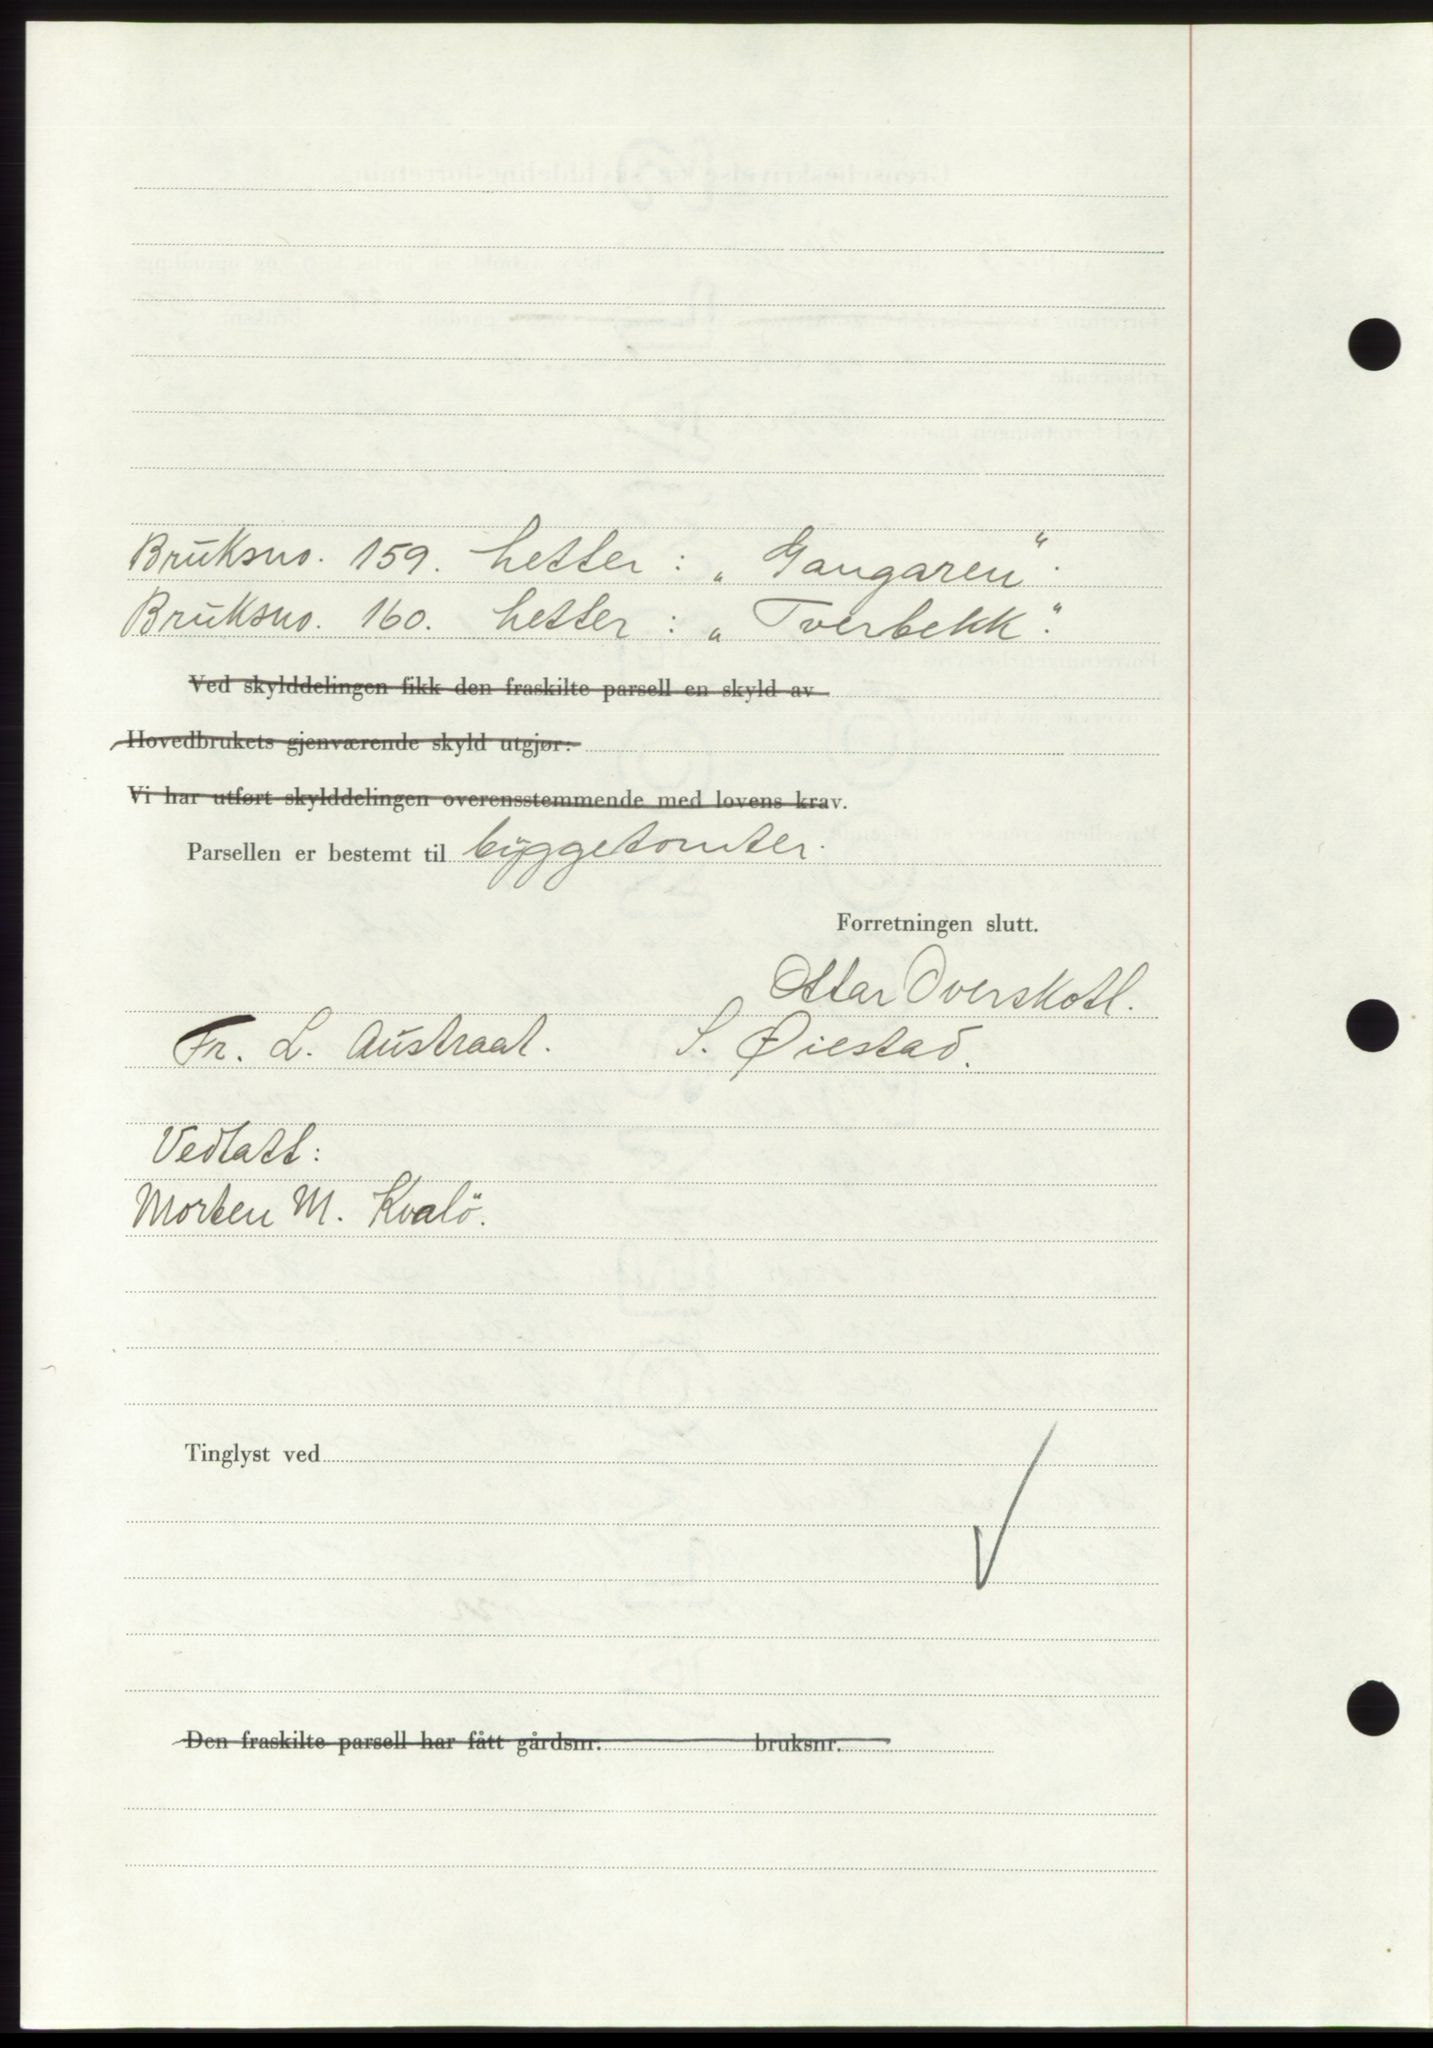 Bruksno. 159. hetter: „Gangaren".
Bruksno. 160. hetter: „Tverbekk".
Ved skylddelingen fikk den fraskilte parsell en skyld av
Hovedbrukets gjenværende skyld utgjør:
Vi har utført skylddelingen overensstemmende med lovens krav.
Parsellen er bestemt til byggetomter.
Forretningen slutt.
Ottar Overskott.
Fr. L. Austraat. S. Øiestad.
Vedtatt:
Morten M. Kvalö.
Tinglyst ved
Den fraskilte parsell har fått gårdsnr. bruksnr.